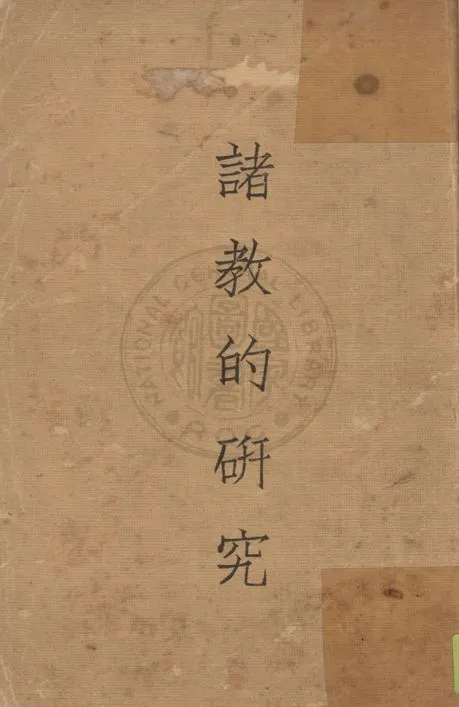 諸教的硏究
NATIONAL CENTRAL LIBRARY
R.O.C.